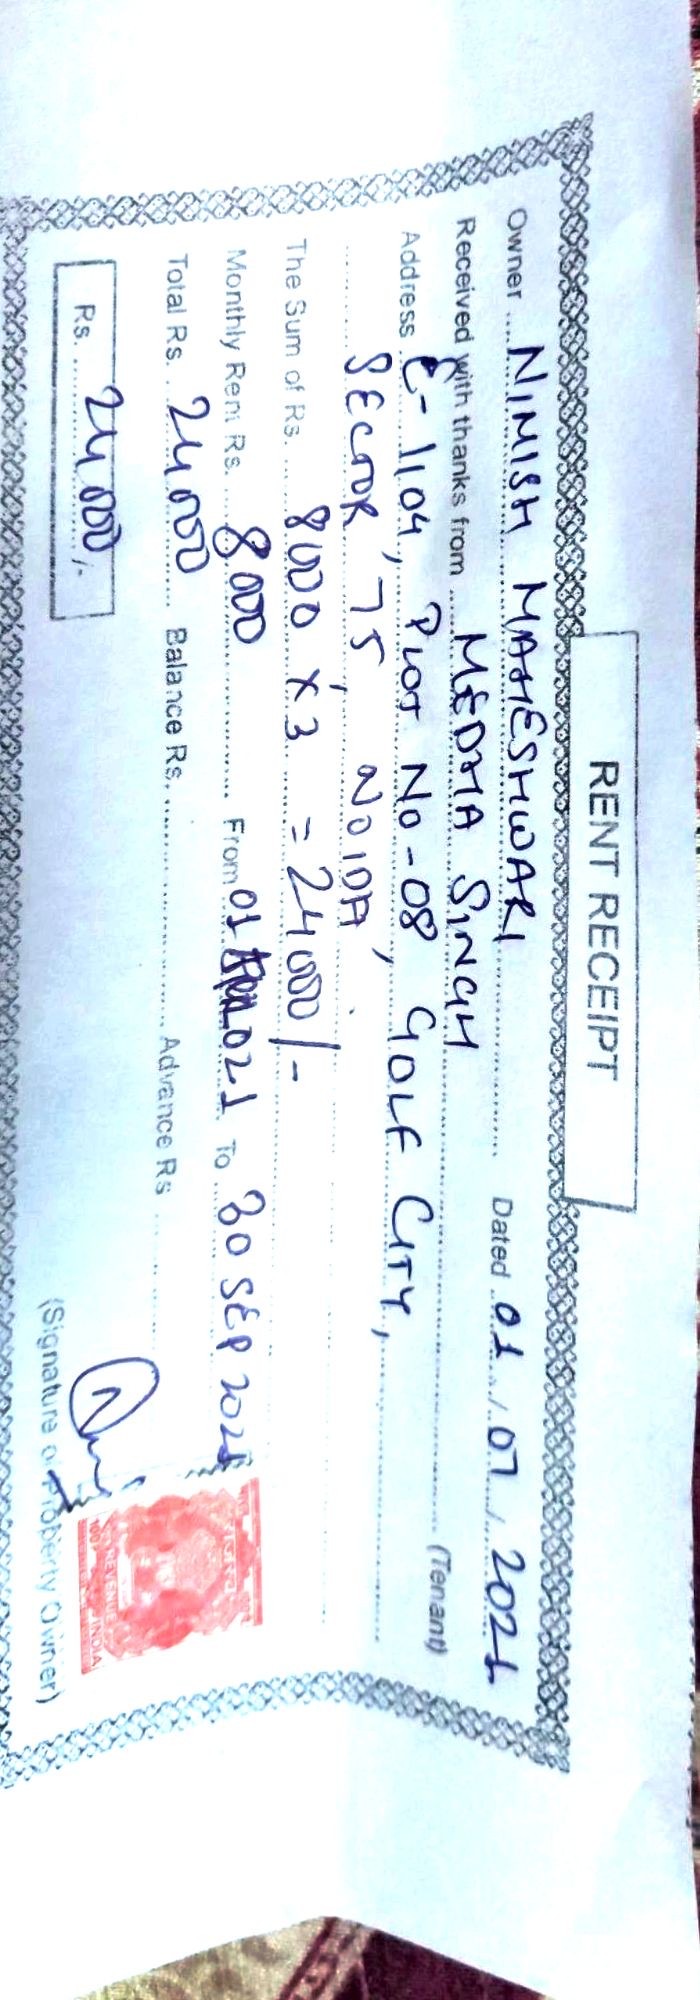 RENT RECEIPT
Owner NIMISH MAHESHWARI Dated 01/07/2021
Received with thanks from MEDHA SINGH (Tenant)
Address E-1104, PLOT NO-08 GOLF CITY,
SECTOR 75, NOIDA,
The Sum of Rs. 8000 X 3 = 24000/-
Monthly Rent Rs. 8000 From 01 2021 To 30 SEP 2021
Total Rs. 24000 Balance Rs. Advance Rs
Rs. 24000/-
REVENUE INDIA
(Signature of Property Owner)